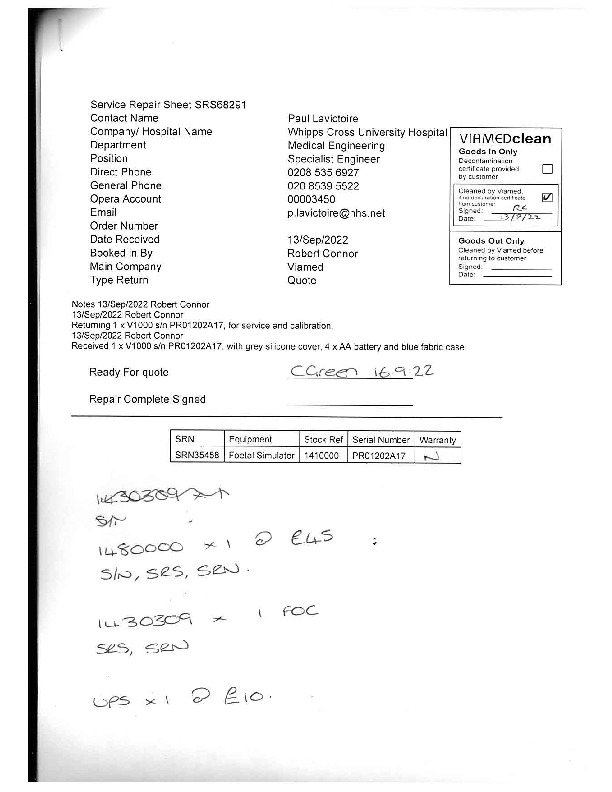 Service Repair Sheet SRS68291
Contact Name Paul Lavictoire
Company/ Hospital Name Whipps Cross University Hospital
Department Medical Engineering
Position Specialist Engineer
Direct Phone 0208 535 6927
General Phone 020 8539 5522
Opera Account 00003450
Email p.lavictoire@nhs.net
Order Number
Date Received 13/Sep/2022
Booked In By Robert Connor
Main Company Viamed
Type Return Quote
VIAMEDclean
Goods In Only
Decontamination
certificate provided
by customer
Cleaned by Viamed,
if no decontamination certificate
from customer
Signed: RC
Date: 13/9/22
Goods Out Only
Cleaned by Viamed before
returning to customer
Signed:
Date:
Notes 13/Sep/2022 Robert Connor
13/Sep/2022 Robert Connor
Returning 1 x V1000 s/n PR01202A17, for service and calibration.
13/Sep/2022 Robert Connor
Received 1 x V1000 s/n PR01202A17, with grey silicone cover, 4 x AA battery and blue fabric case
Ready For quote CGreen 16.9.22
Repair Complete Signed
SRN Equipment Stock Ref Serial Number Warranty
SRN35458 Foetal Simulator 1410000 PR01202A17 N
1430309 x 1
S/N
1480000 x 1 @ £45
S/N, SRS, SRN.
1430309 x 1 FOC
SRS, SRN
UPS x 1 @ £10.